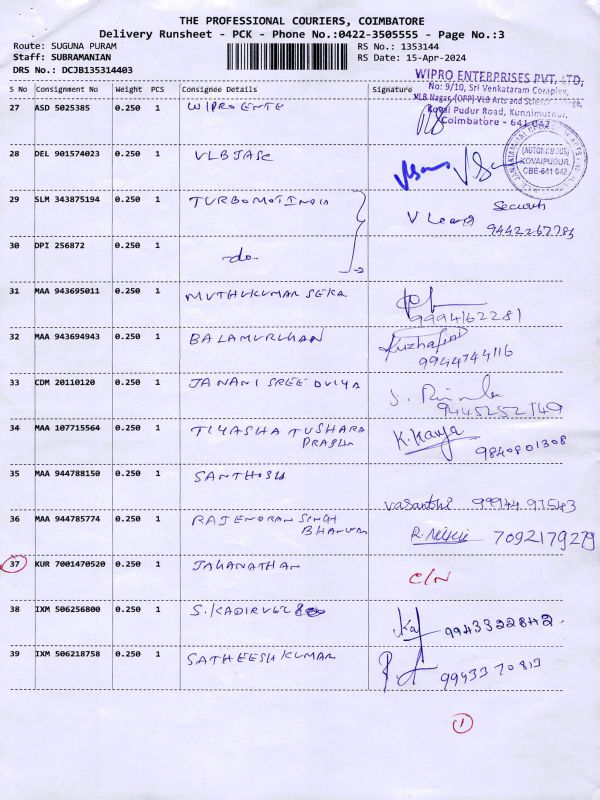 THE PROFESSIONAL COURIERS, COIMBATORE
Delivery Runsheet - PCK - Phone No.:0422-3505555 - Page No.:3
Route: SUGUNA PURAM
RS No.: 1353144
Staff: SUBRAMANIAN
RS Date: 15-Apr-2024
DRS No.: DCJB135314403
WIPRO ENTERPRISES PVT. LTD,
No: 9/10, Sri Venkataram Complex,
VLB Nagar, (OPP) VLB Arts and Science College,
Kovai Pudur Road, Kunnimuthur,
Coimbatore - 641 042
S No Consignment No Weight PCS Consignee Details Signature
27 ASD 5025385 0.250 1 WIPRO ENTE
(AUTONOMOUS)
KOVAIPUDUR,
CBE-641 042
28 DEL 901574023 0.250 1 VLBJASC
29 SLM 343875194 0.250 1 TURBOMOT INDIA
Security
9442267783
30 DPI 256872 0.250 1 -do-
31 MAA 943695011 0.250 1 MUTHUKUMAR SEKA
9994162281
32 MAA 943694943 0.250 1 BALAMURUHAN
9944744116
33 CDM 20110120 0.250 1 JANANI SREE OVIYA
9445252149
34 MAA 107715564 0.250 1 TIYASHA TUSHARA
PRABHU
K. Kavya
9840801308
35 MAA 944788150 0.250 1 SANTHOSH
vasanthi 99944 97543
36 MAA 944785774 0.250 1 RAJENDRAN SINGH
BHANUM
7092179279
37 KUR 7001470520 0.250 1 JAGANATHAN
C/N
38 IXM 506256800 0.250 1 S. KADIRVEL
9943322842.
39 IXM 506218758 0.250 1 SATHEESH KUMAR
9943370813
1